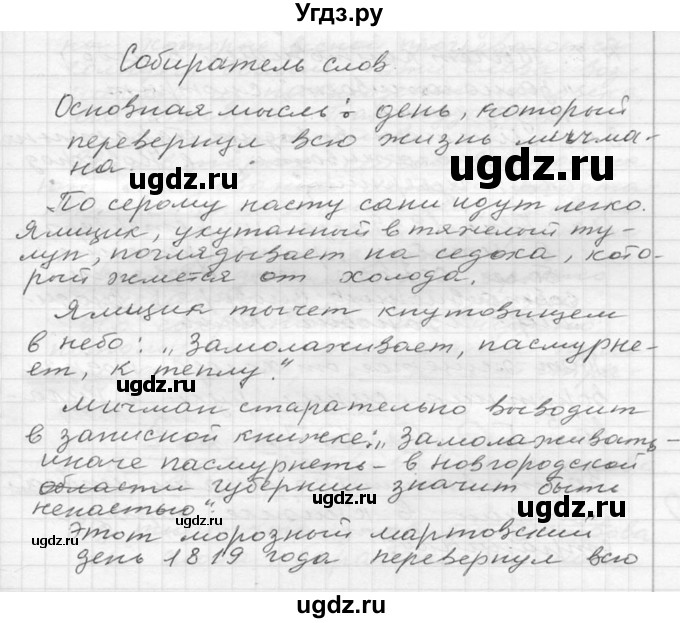 Угдз.ру
Собиратель слов.
Основная мысль: день, который
перевернул всю жизнь мичма-
на.
ugdz.ru
ugdz.ru
По серому насту сани идут легко.
Ямщик, укутанный в тяжелый ту-
луп, поглядывает на седока, кото-
рый жмется от холода.
ugdz.ru
ugdz.ru
Ямщик тычет кнутовищем
в небо: „Замолаживает, пасмурне-
ет, к теплу."
ugdz.ru
Мичман старательно выводит
в записной книжке: „Замолаживать -
иначе пасмурнеть - в новгородской
области губернии значит быть
ненастью".
ugdz.ru
ugdz.ru
ugdz.ru
Этот морозный мартовский
день 1819 года перевернул всю
ugdz.ru
ugdz.ru